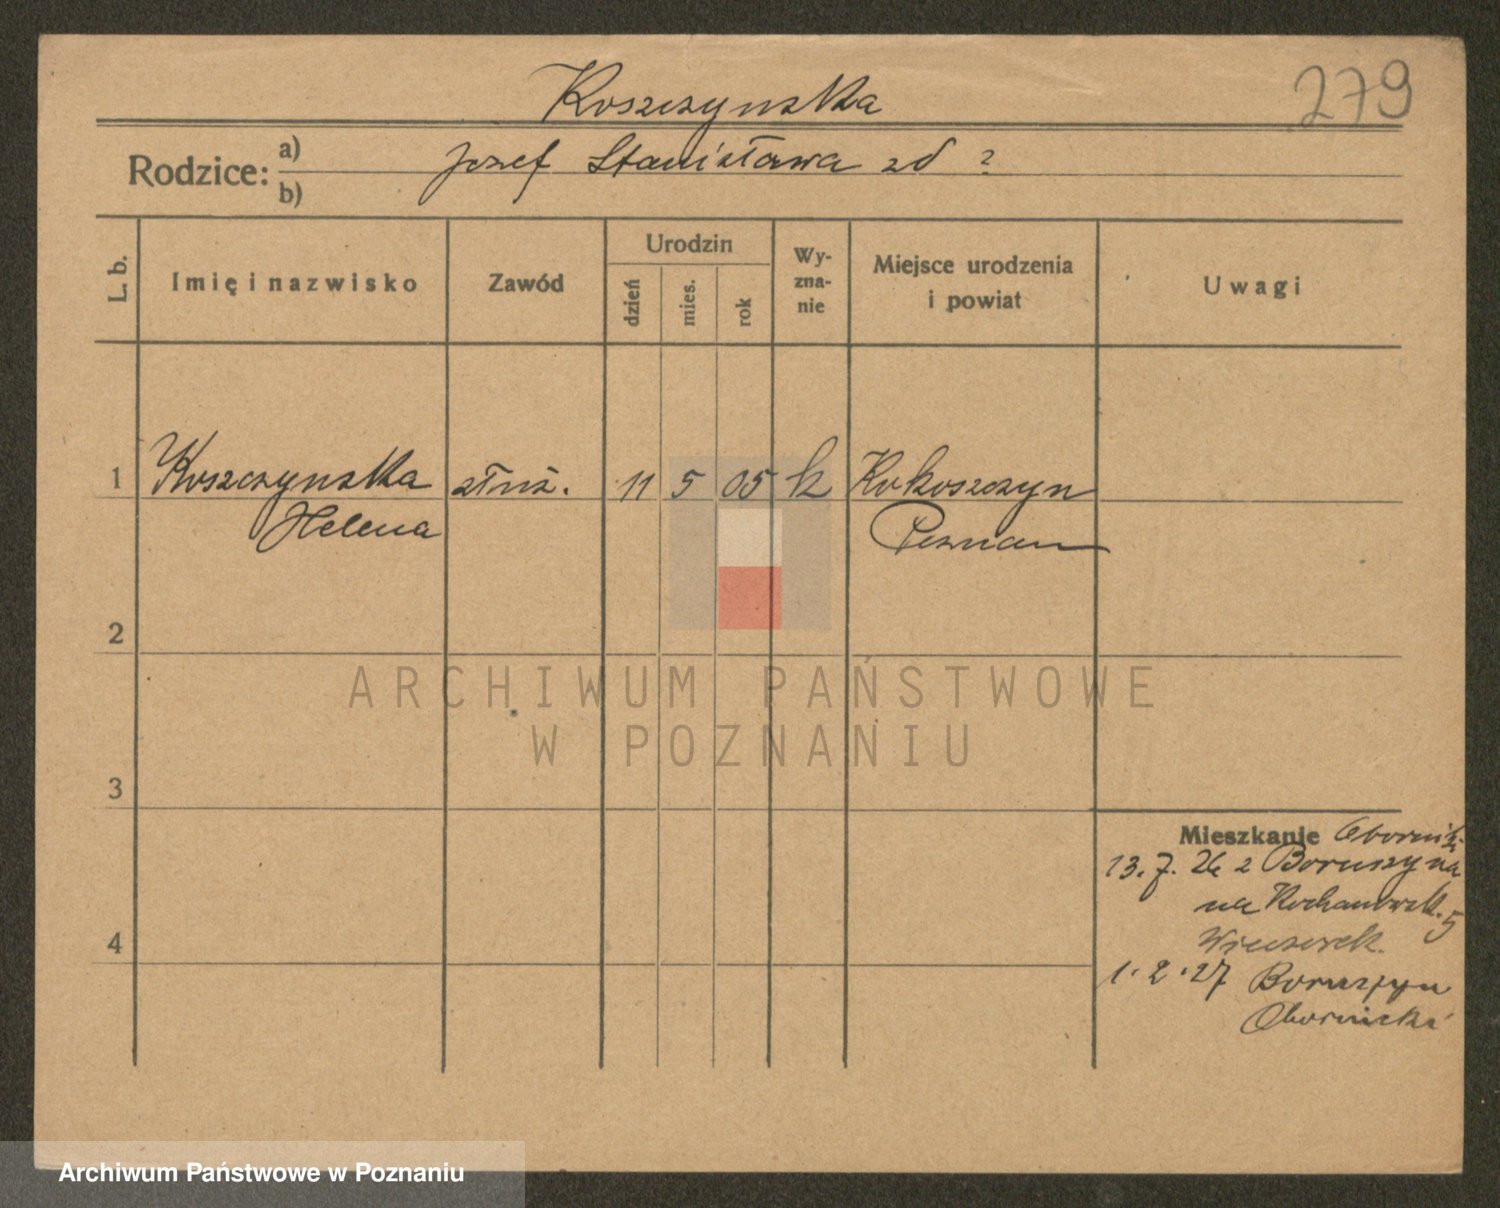 Koszczynska
279
Rodzice: a) Jozef Stanisława zd ?
b)
L. b.
Imię i nazwisko
Zawód
Urodzin
dzień
mies.
rok
Wy-
zna-
nie
Miejsce urodzenia
i powiat
Uwagi
1 Koszczynska służ. 11 5 05 k Kokoszczyn
Helena Poznan
2
ARCHIWUM PAŃSTWOWE
W POZNANIU
3
Mieszkanie Oborniki
13. 7. 26 z Boruszyna
na Kochanowsk. 5
4
1. 2. 27 Boruszyn
Obornicki
Archiwum Państwowe w Poznaniu